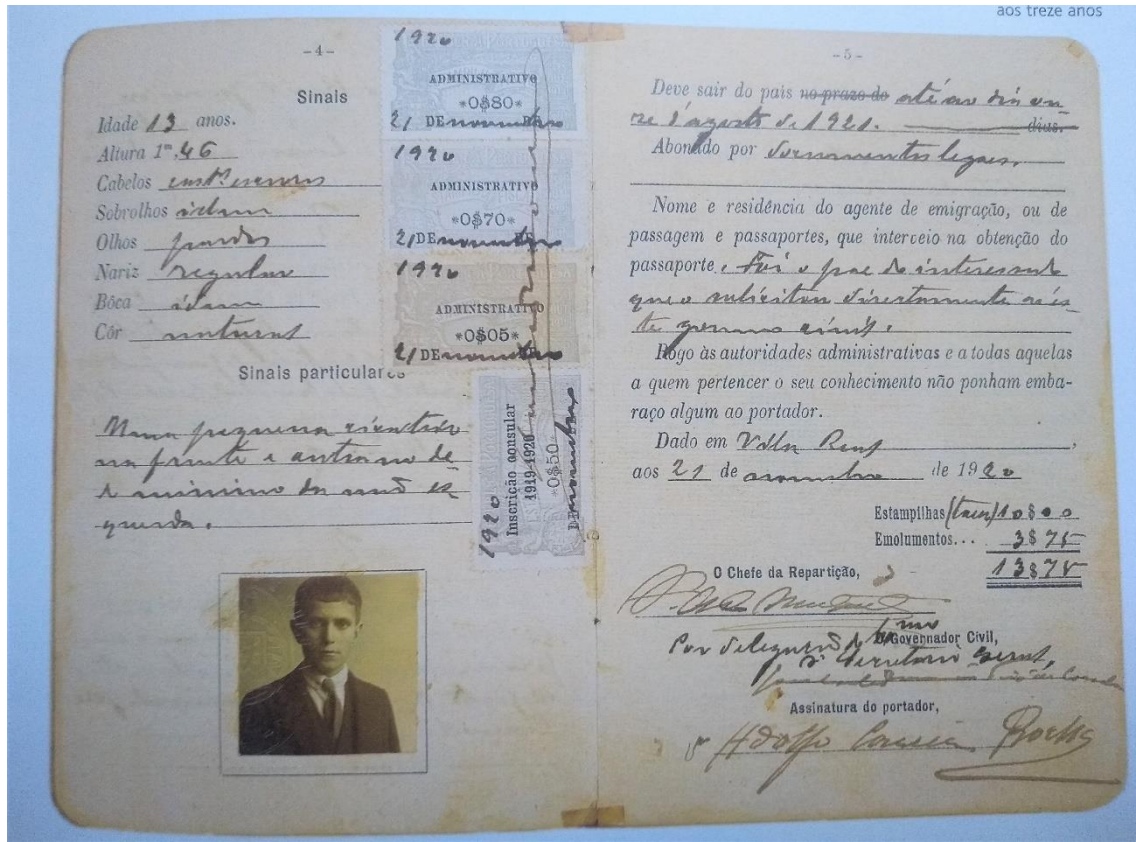 aos treze anos
-4-
Sinais
Idade 13 anos.
Altura 1ᵐ,46
Cabelos castº escuros
Sobrolhos idem
Olhos pardos
Nariz regular
Bôca idem
Côr natural
Sinais particulares
Uma pequena cicatriz
na frente e outra no de-
do minimo da mão es-
querda.
1920
ADMINISTRATIVO
*0$80*
21 DE novembro
1920
ADMINISTRATIVO
*0$70*
21 DE novembro
1920
ADMINISTRATIVO
*0$05*
21 DE novembro
1920
Inscrição consular
1919-1920
*0$50*
DE novembro
-5-
Deve sair do país no prazo de até ao dia on-
ze d'agosto de 1921. dias.
Abonado por documentos legaes.
Nome e residência do agente de emigração, ou de
passagem e passaportes, que interceio na obtenção do
passaporte. Foi o pae do interessado
que o solicitou directamente nés-
te governo civil.
Rogo às autoridades administrativas e a todas aquelas
a quem pertencer o seu conhecimento não ponham emba-
raço algum ao portador.
Dado em Villa Real,
aos 21 de novembro de 1920
Estampilhas (taxa) 10$00
Emolumentos... 3$75
13$75
O Chefe da Repartição,
Por delegação do Exmo
O Governador Civil,
O Secretario Geral,
Assinatura do portador,
Adolfo Correia Rocha